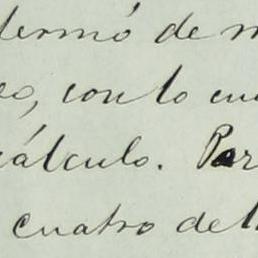 fermó de m
so, con lo cu
cálculo. Par
cuatro de l